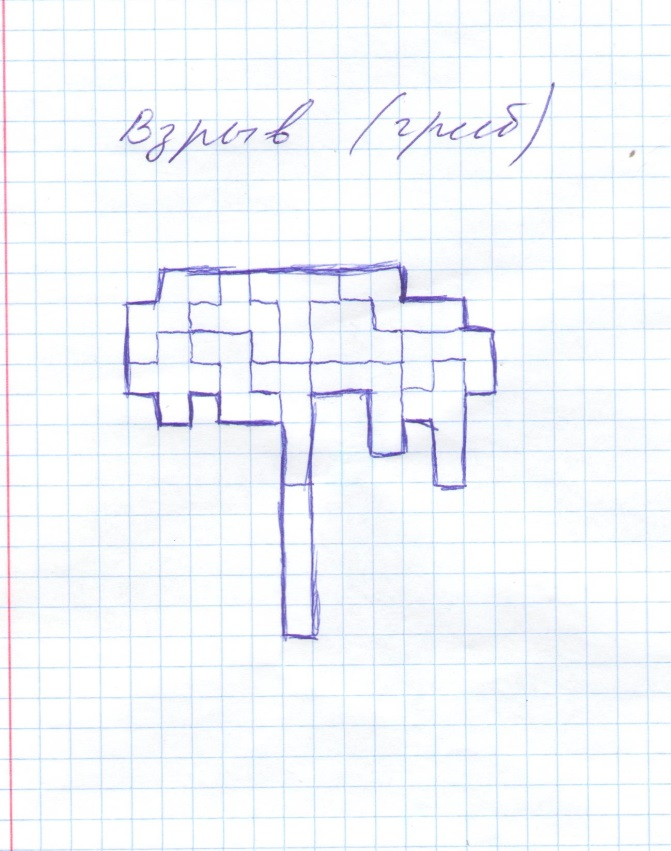 Взрыв (гриб)